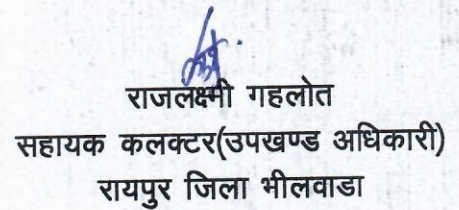 राजलक्ष्मी गहलोत
सहायक कलक्टर(उपखण्ड अधिकारी)
रायपुर जिला भीलवाडा